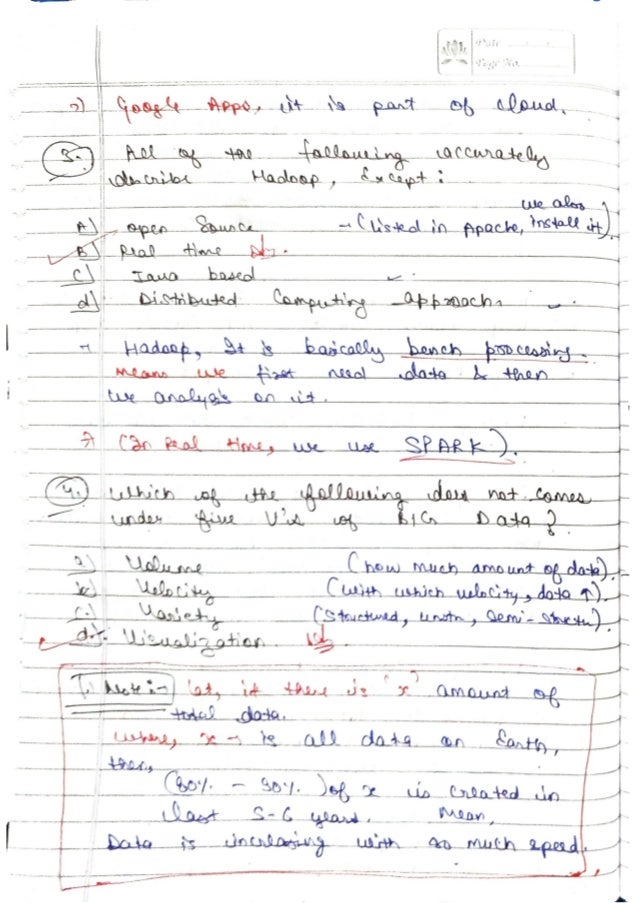 Date
Page No.
→) Google Apps, it is part of cloud.
3. All of the following accurately
describe Hadoop, Except:
we also
A) open Source → (listed in Apache, install it).
B) Real time
C) Java based ✓.
d) Distibuted Computing approach. ✓.
→ Hadoop, It is basically bench processing.
Means we first need data & then
we analysis on it.
→ (In Real time, we use SPARK).
4. Which of the following does not comes
under five V's of BIG Data?
a) Volume (how much amount of data).
b) Velocity (with which velocity, data ↑).
c.) Variety (Structured, unstr, Semi-structu).
d.) Visualization.
Note:- let, if there is 'x' amount of
total data.
where, x → is all data on Earth,
then,
(80% - 90%.) of x is created in
last 5-6 years. Mean,
Data is increasing with so much speed.